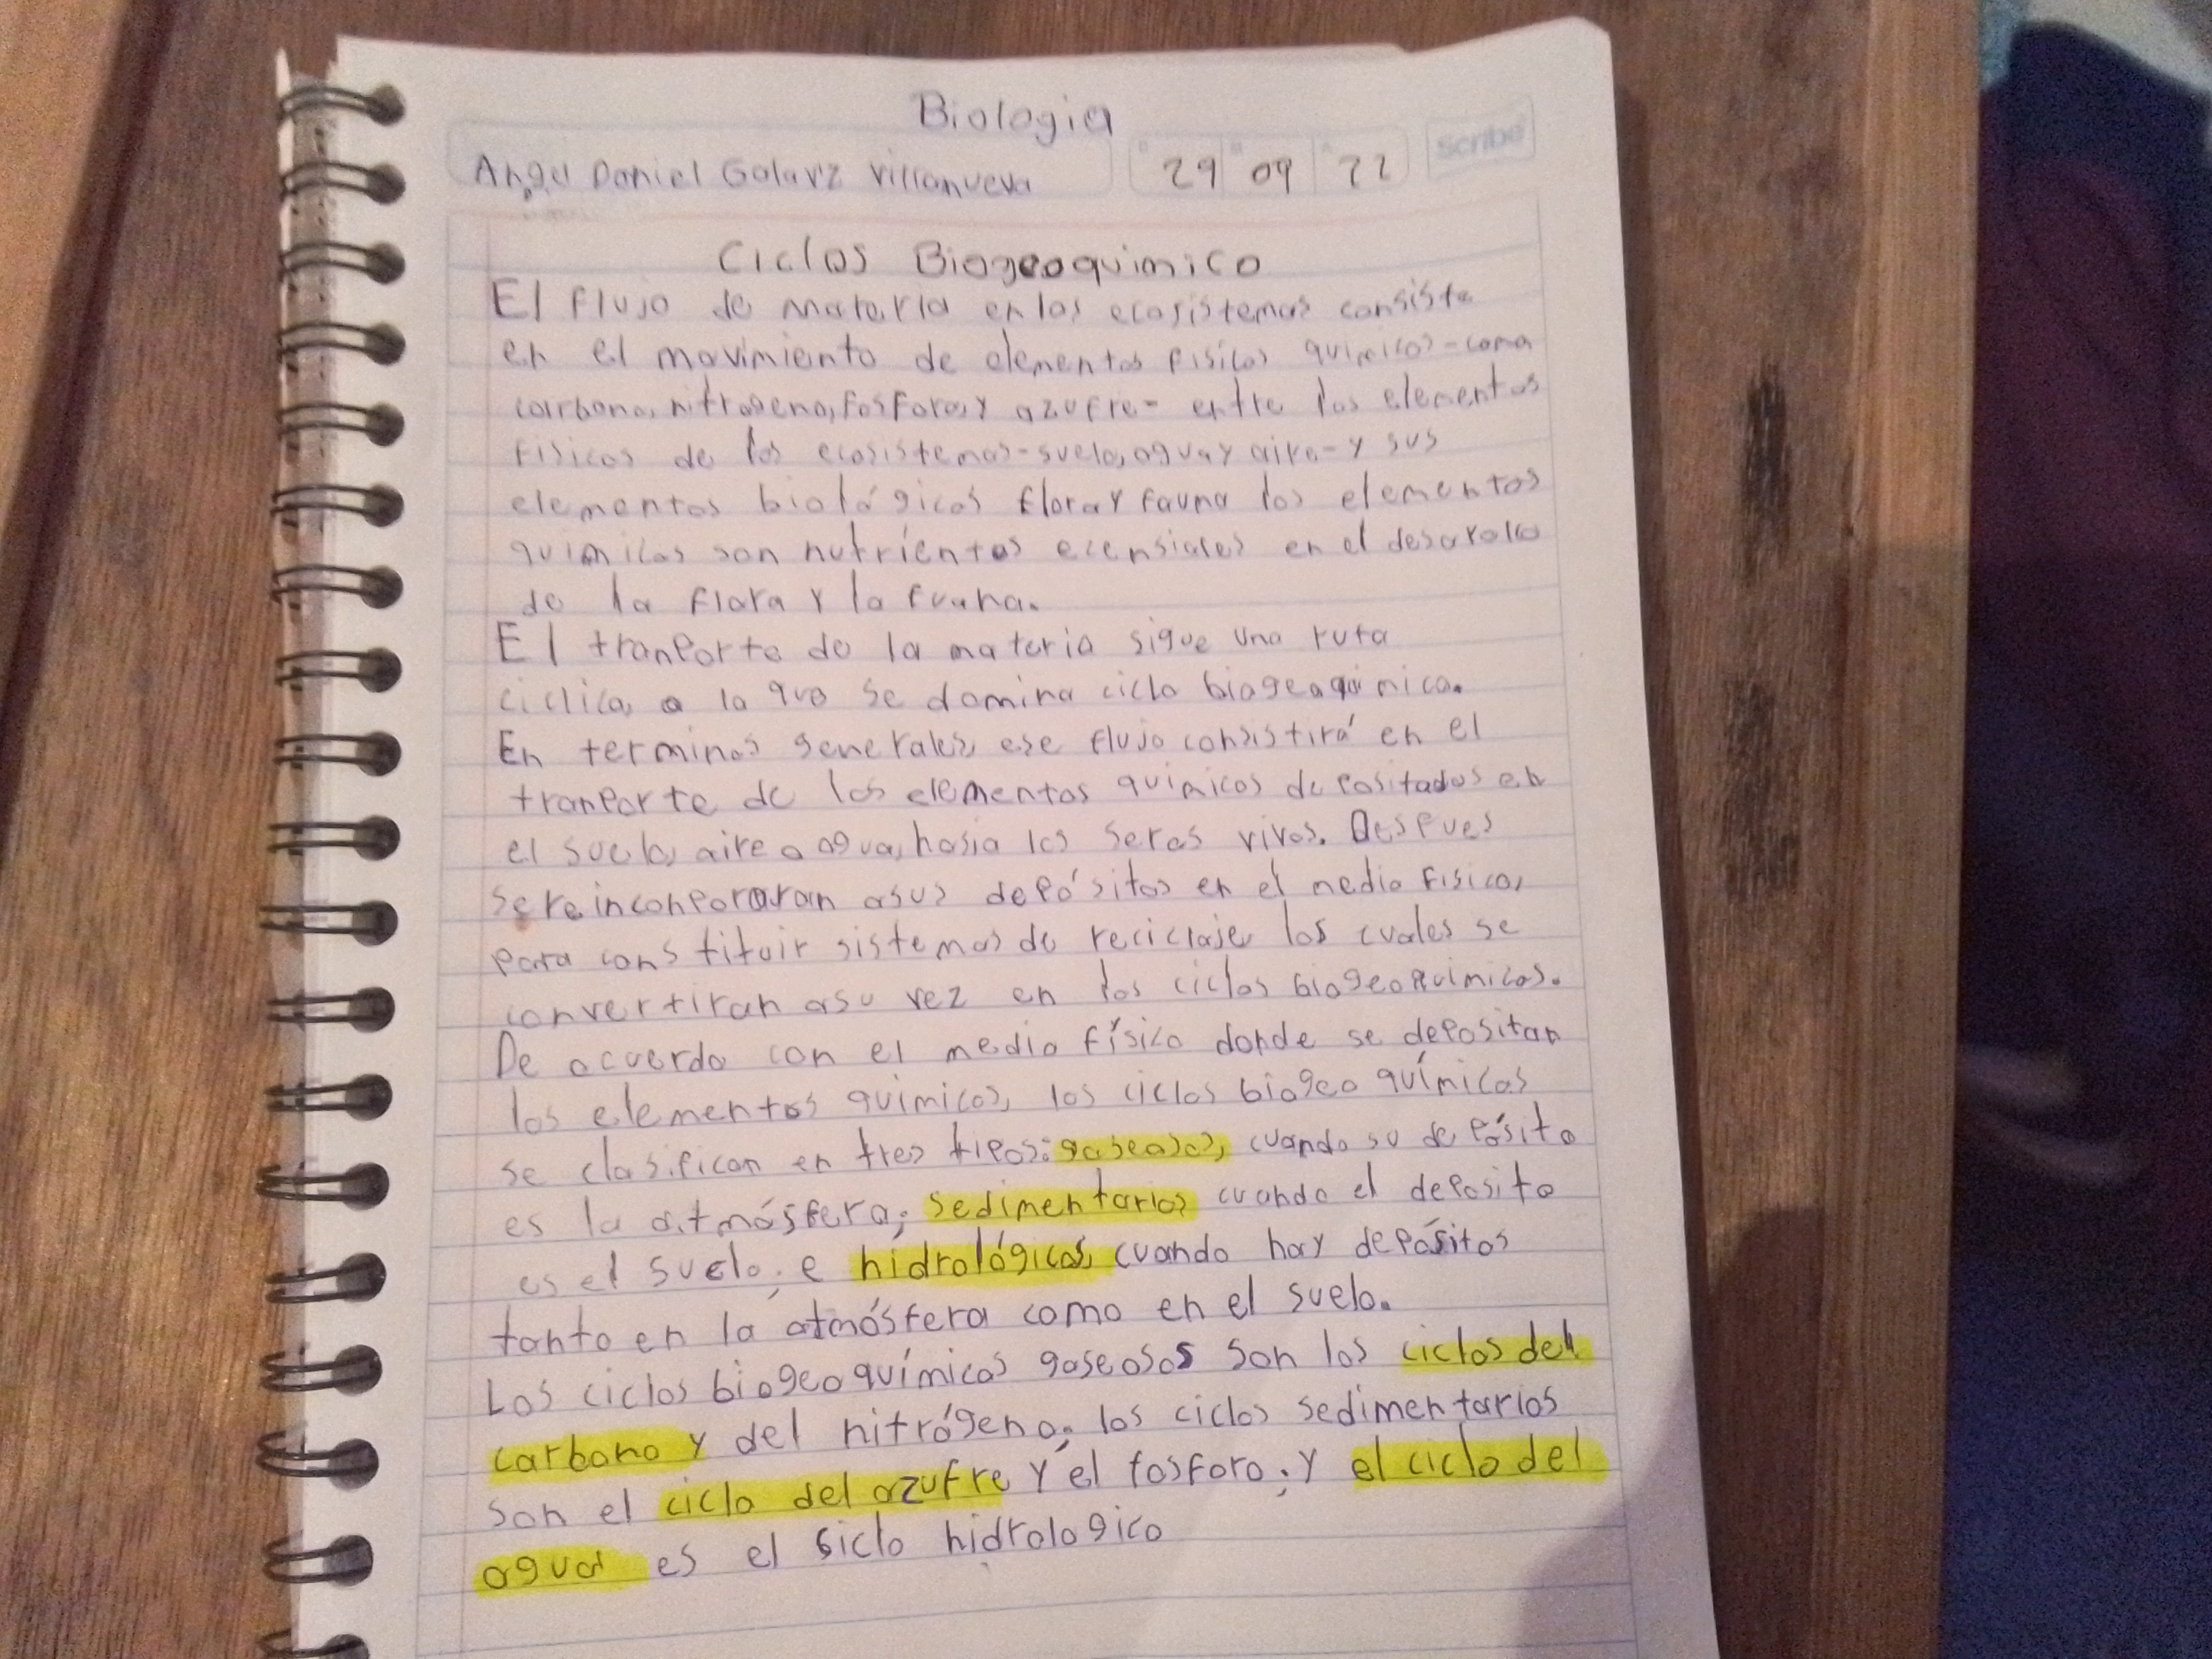 Biologia
Angel Daniel Galarz Villanueva
29 09 22
Scribe
Ciclos Biogeoquimico
El Flujo de materia en los ecosistemas consiste
en el movimiento de elementos fisicos quimicos-como
carbono, nitrogeno, fosforo, y azufre- entre los elementos
fisicos de los ecosistemas-suelo, agua y aire-y sus
elementos biológicos flora y fauna los elementos
quimicos son nutrientes ecensiales en el desarollo
de la flora y la fauna.
El tranporte de la materia sigue una ruta
ciclica, a la que se domina ciclo biogeaquimico.
En terminos generales, ese flujo consistirá en el
tranporte de los elementos quimicos depositados en
el suelo, aire o agua, hasia los seres vivos. Despues
se reinconporaran a sus depósitos en el medio fisico,
para constituir sistemas de reciclaje, los cuales se
convertiran a su vez en los ciclos biogeoquimicos.
De acuerdo con el medio físico donde se depositan
los elementos quimicos, los ciclos biogeo químicos
se clasifican en tres tipos: gaseosos, cuando su depósito
es la atmósfera; sedimentarios cuando el deposito
es el suelo; e hidrológicos, cuando hay depósitos
tanto en la atmósfera como en el suelo.
Los ciclos biogeoquímicos gaseosos son los ciclos del
carbono y del nitrógeno; los ciclos sedimentarios
son el ciclo del azufre y el fosforo; y el ciclo del
agua es el siclo hidrologico